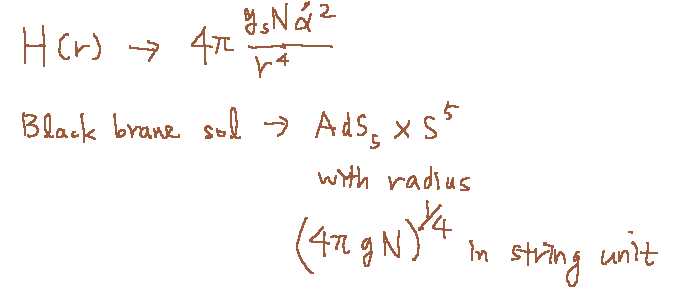 H(r) → 4π g_s N α'^2 / r^4
Black brane sol → AdS_5 × S^5
with radius
(4π g N)^{1/4} in string unit